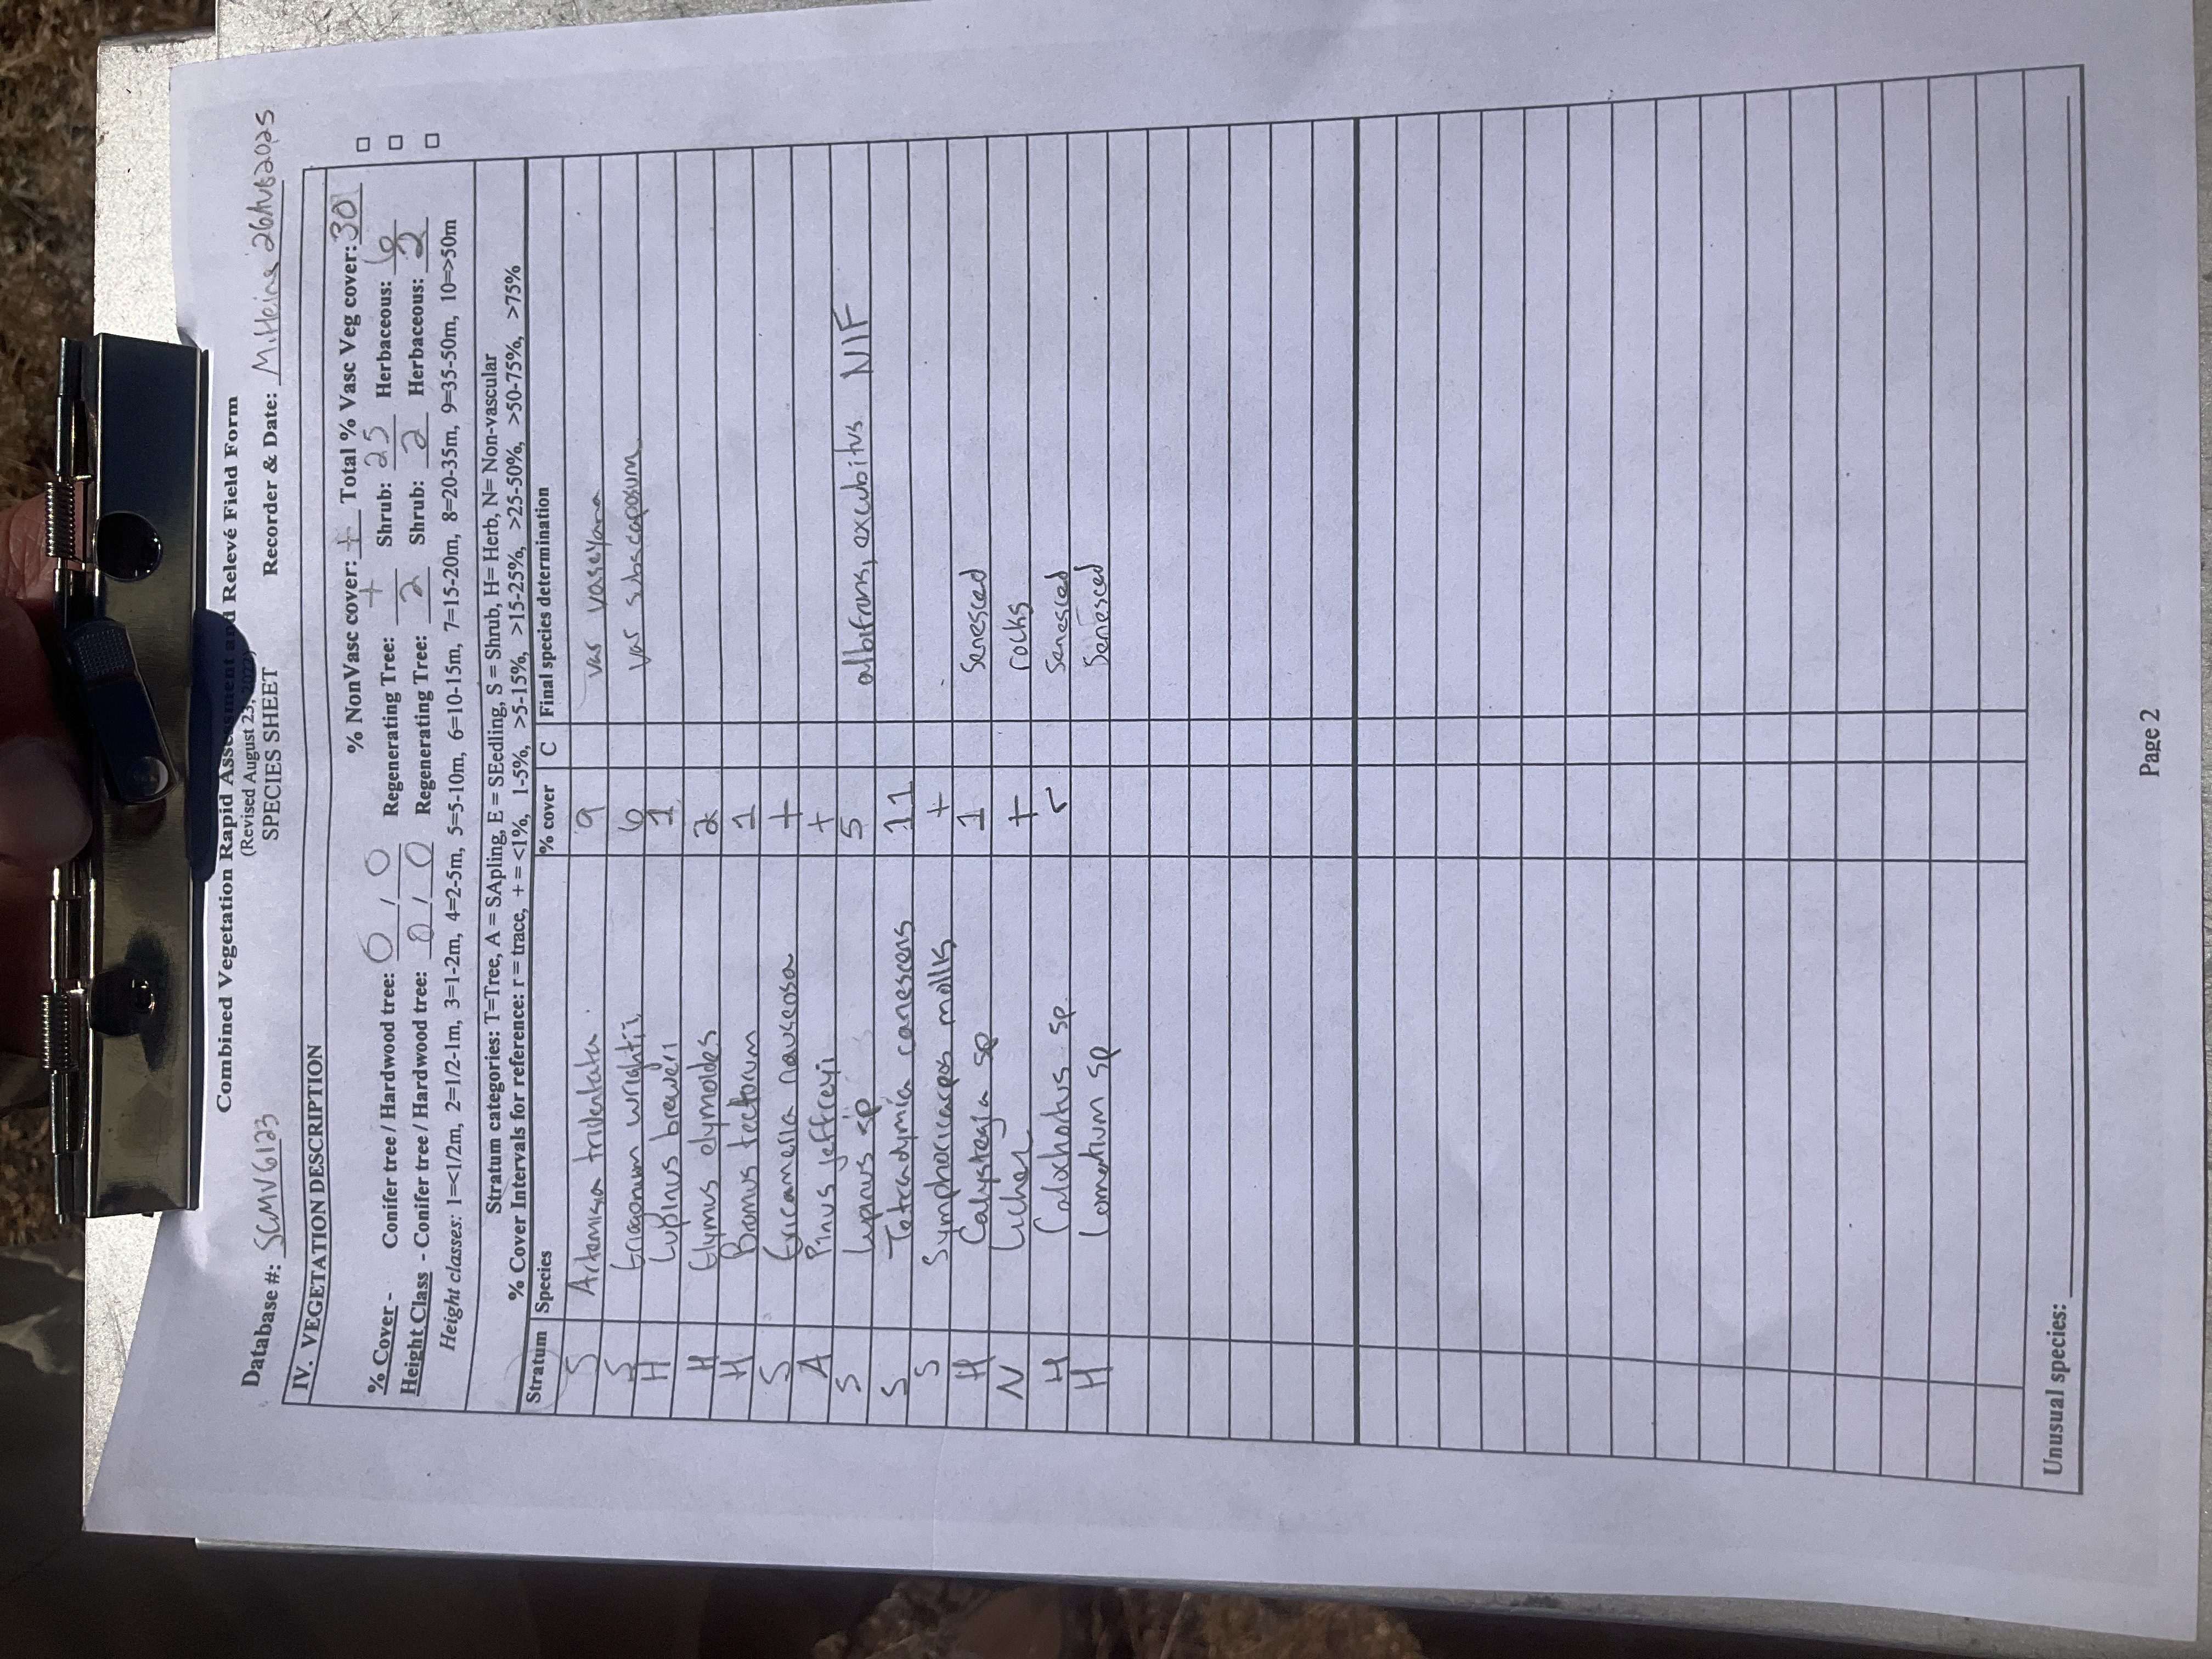 Combined Vegetation Rapid Assessment and Relevé Field Form
(Revised August 23, 2022)
Database #: SCMV6123 SPECIES SHEET Recorder & Date: M.Heine 26AUG2025
IV. VEGETATION DESCRIPTION
% NonVasc cover: + Total % Vasc Veg cover: 30
% Cover - Conifer tree / Hardwood tree: 0 / 0 Regenerating Tree: + Shrub: 25 Herbaceous: 6
Height Class - Conifer tree / Hardwood tree: 0 / 0 Regenerating Tree: 2 Shrub: 2 Herbaceous: 2
Height classes: 1=<1/2m, 2=1/2-1m, 3=1-2m, 4=2-5m, 5=5-10m, 6=10-15m, 7=15-20m, 8=20-35m, 9=35-50m, 10=>50m
Stratum categories: T=Tree, A = SApling, E = SEedling, S = Shrub, H= Herb, N= Non-vascular
% Cover Intervals for reference: r = trace, + = <1%, 1-5%, >5-15%, >15-25%, >25-50%, >50-75%, >75%
Stratum Species % cover C Final species determination
S Artemisia tridentata 9 var vaseyana
S Eriogonum wrightii 6 var subscaposum
H Lupinus breweri 1
H Elymus elymoides 2
H Bromus tectorum 1
S Ericameria nauseosa +
A Pinus jeffreyi +
S Lupinus sp 5 albifrons, excubitus NIF
S Tetradymia canescens 11
S Symphoricarpos mollis +
H Calystegia sp 1 Senesced
N Lichen + rocks
H Calochortus sp. r Senesced
H Lomatium sp Senesced
Unusual species:
Page 2